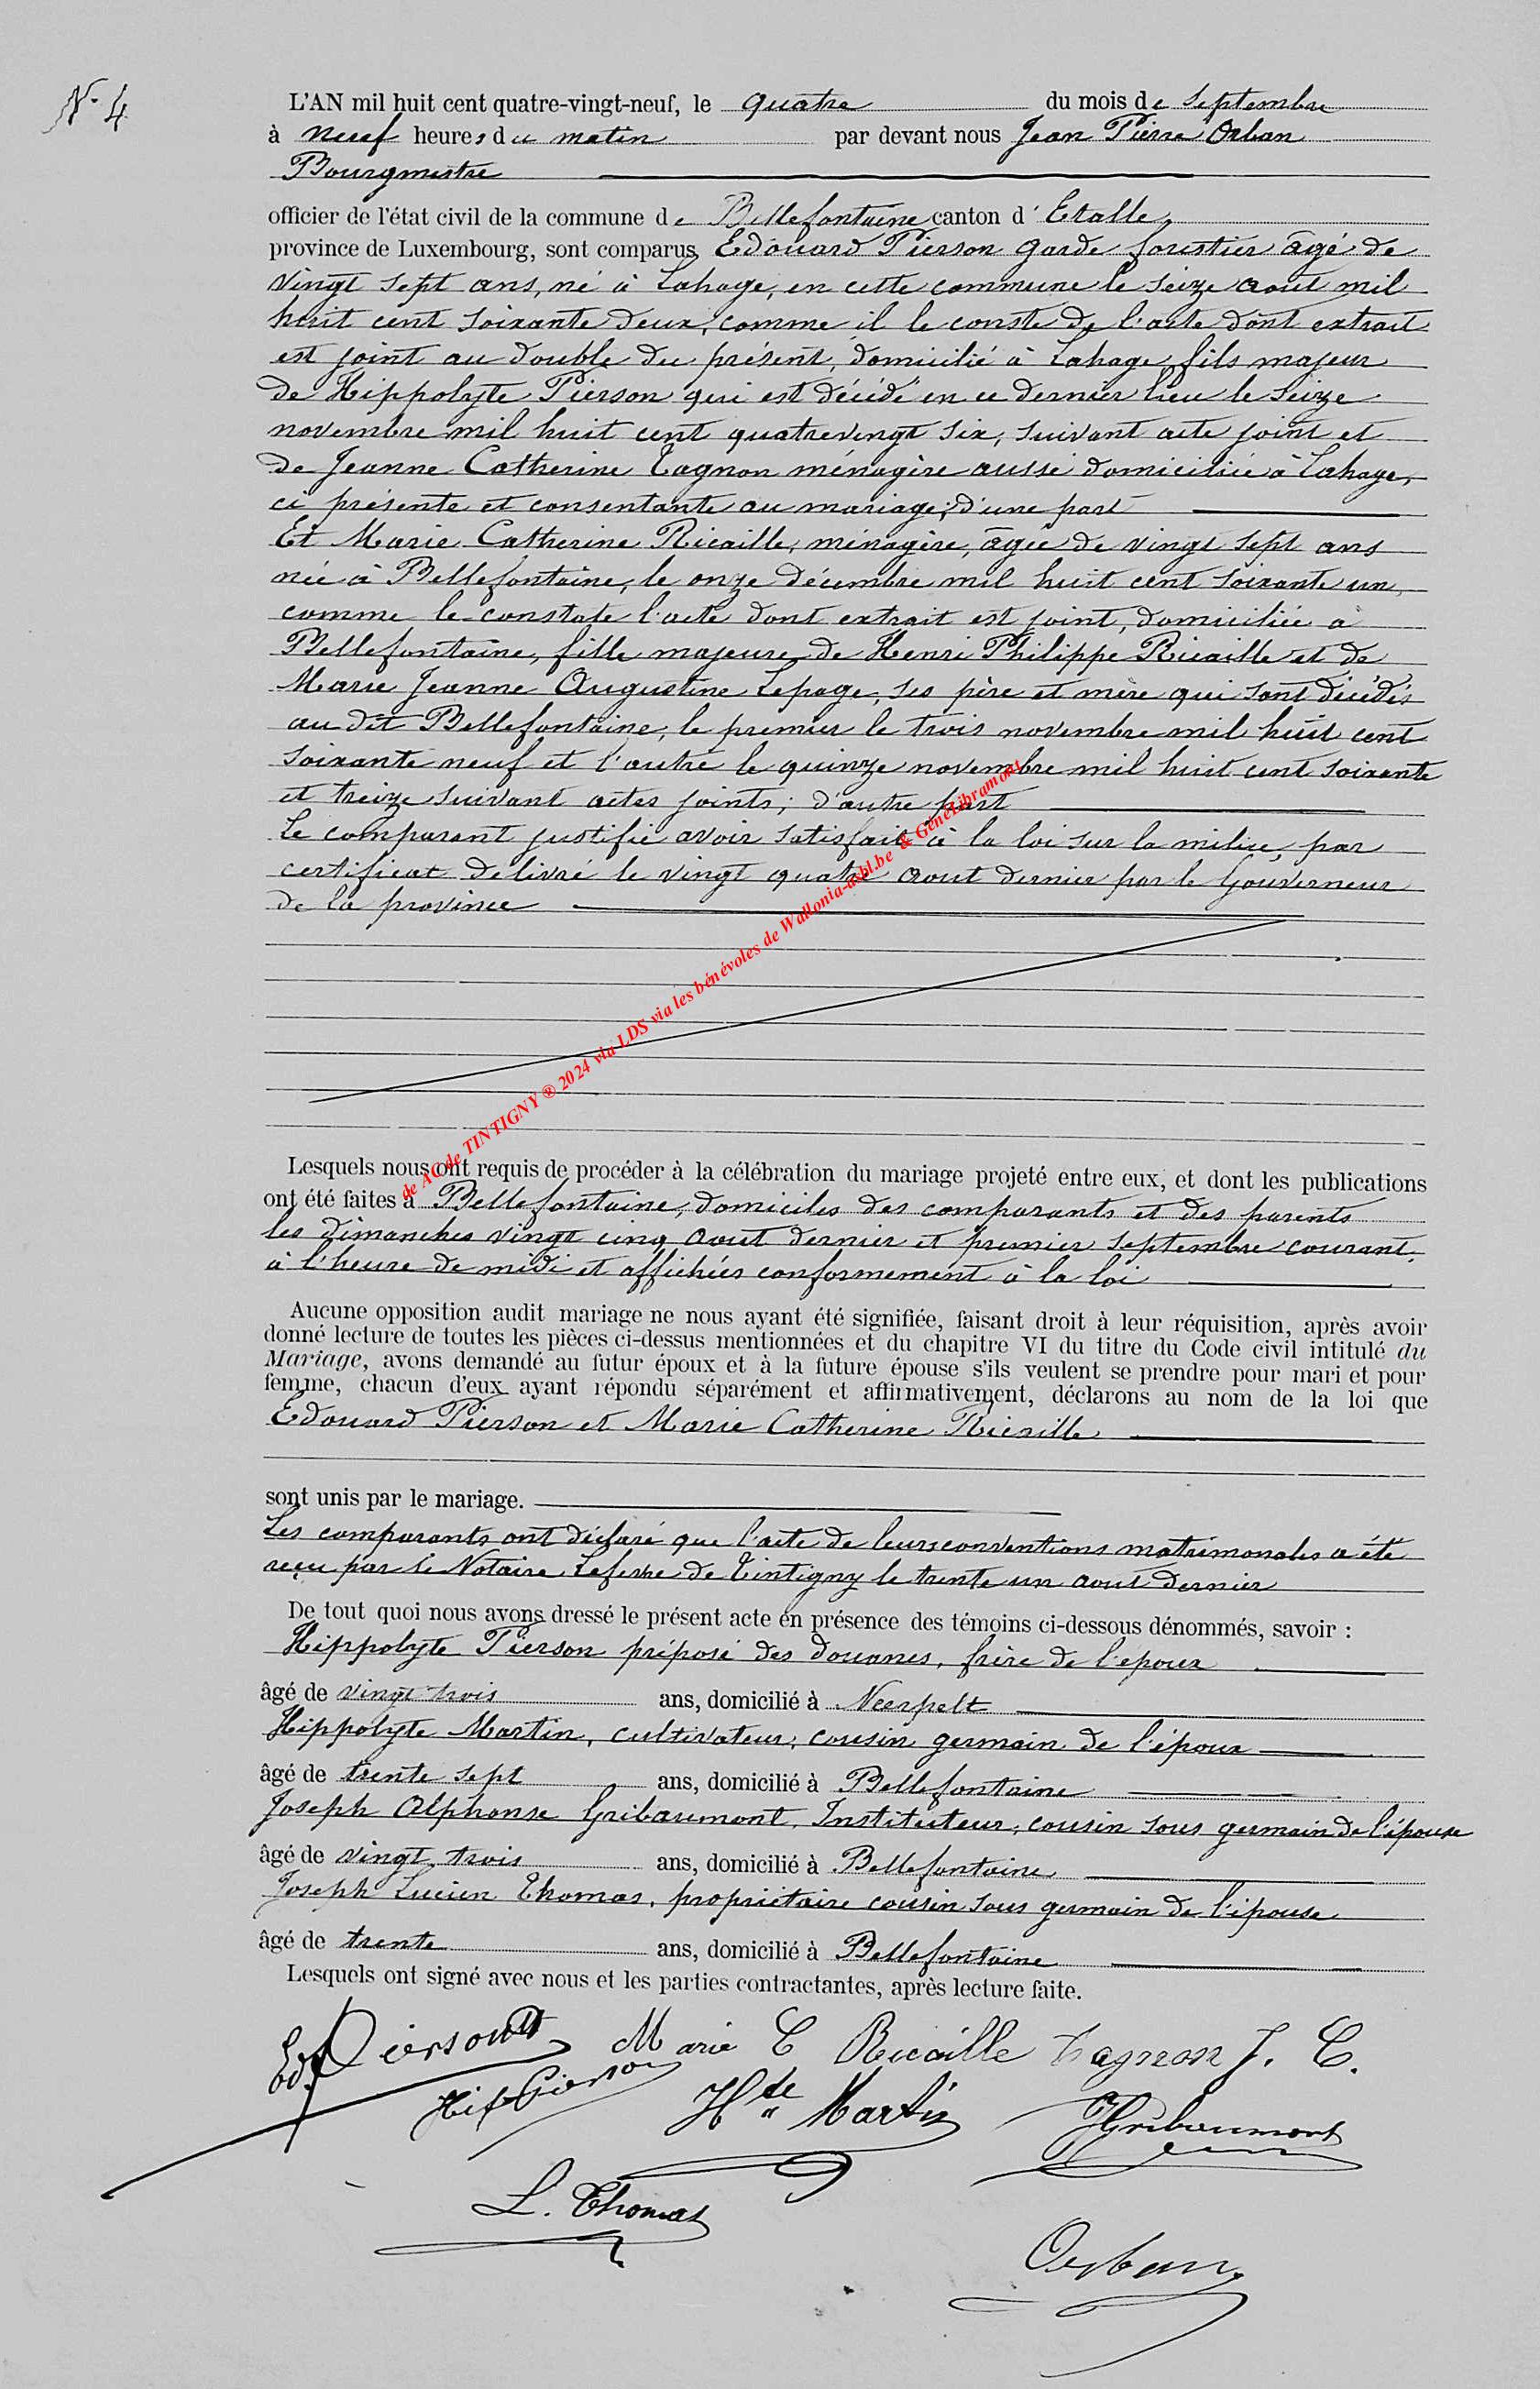 N° 4
L'AN mil huit cent quatre-vingt-neuf, le quatre du mois de Septembre
à neuf heures du matin par devant nous Jean Pierre Orban
Bourgmestre
officier de l'état civil de la commune de Bellefontaine canton d'Etalle,
province de Luxembourg, sont comparus Edouard Pierson garde forestier âgé de
vingt sept ans, né à Lahage, en cette commune le seize aout mil
huit cent soixante deux, comme il le conste de l'acte dont extrait
est joint au double du présent, domicilié à Lahage, fils majeur
de Hippolyte Pierson qui est décédé en ce dernier lieu le seize
novembre mil huit cent quatrevingt six, suivant acte joint et
de Jeanne Catherine Tagnon ménagère aussi domiciliée à Lahage,
ci présente et consentante au mariage; d'une part
Et Marie Catherine Ricaille, ménagère, âgée de vingt sept ans
née à Bellefontaine, le onze décembre mil huit cent soixante un,
comme le constate l'acte dont extrait est joint, domiciliée à
Bellefontaine, fille majeure de Henri Philippe Ricaille et de
Marie Jeanne Augustine Lepage, ses père et mère qui sont décédés
au dit Bellefontaine, le premier le trois novembre mil huit cent
soixante neuf et l'autre le quinze novembre mil huit cent soixante
et treize suivant actes joints; d'autre part
Le comparant justifie avoir satisfait à la loi sur la milice, par
certificat delivré le vingt quatre aout dernier par le Gouverneur
de la province
de AC de TINTIGNY ® 2024 via LDS via les bénévoles de Wallonia-asbl.be & GénéLibramont
Lesquels nous ont requis de procéder à la célébration du mariage projeté entre eux, et dont les publications
ont été faites à Bellefontaine, domiciles des comparants et des parents
les dimanches vingt cinq aout dernier et premier septembre courant,
à l'heure de midi et affichées conformement à la loi
Aucune opposition audit mariage ne nous ayant été signifiée, faisant droit à leur réquisition, après avoir
donné lecture de toutes les pièces ci-dessus mentionnées et du chapitre VI du titre du Code civil intitulé du
Mariage, avons demandé au futur époux et à la future épouse s'ils veulent se prendre pour mari et pour
femme, chacun d'eux ayant répondu séparément et affirmativement, déclarons au nom de la loi que
Edouard Pierson et Marie Catherine Ricaille
sont unis par le mariage.
Les comparants ont déclaré que l'acte de leurs conventions matrimonales a été
reçu par le Notaire Lefevre de Tintigny le trente un aout dernier
De tout quoi nous avons dressé le présent acte en présence des témoins ci-dessous dénommés, savoir :
Hippolyte Pierson préposé des douanes, frère de l'époux
âgé de vingt trois ans, domicilié à Neerpelt
Hippolyte Martin, cultivateur, cousin germain de l'époux
âgé de trente sept ans, domicilié à Bellefontaine
Joseph Alphonse Gribaumont, Instituteur, cousin sous germain de l'épouse
âgé de vingt trois ans, domicilié à Bellefontaine
Joseph Lucien Thomas, propriétaire cousin sous germain de l'épouse
âgé de trente ans, domicilié à Bellefontaine
Lesquels ont signé avec nous et les parties contractantes, après lecture faite.
Ed Pierson Marie C Ricaille Tagnon J. C.
Hip Pierson Hte Martin JGribaumont
L. Thomas
Orban